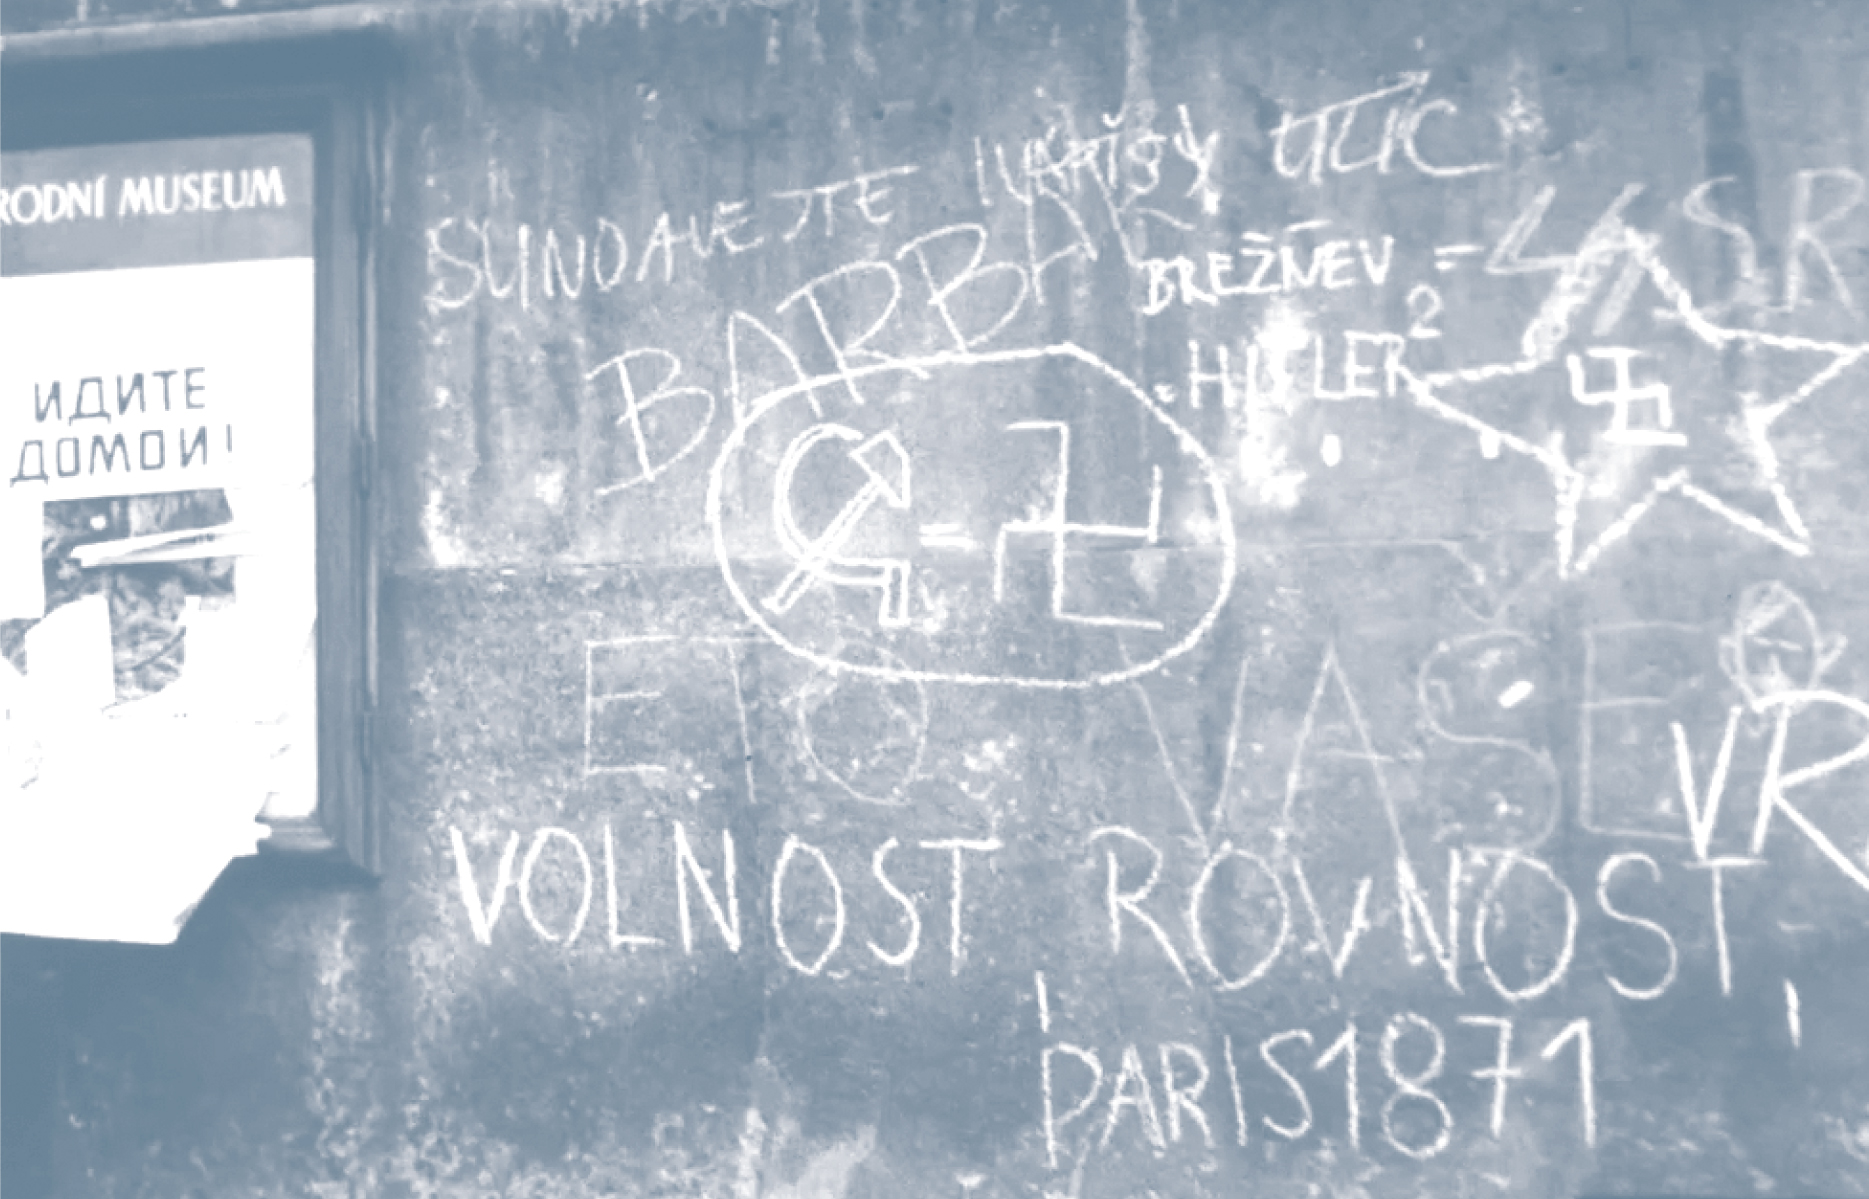 RODNÍ MUSEUM
ИДИТЕ
ДОМОИ!
SUNDAVEJTE ULIC
BARBAŘI
BREŽNĚV =
HITLER²
SSSR
=
ETO VAŠE
VR
VOLNOST ROVNOST,
PARIS 1871